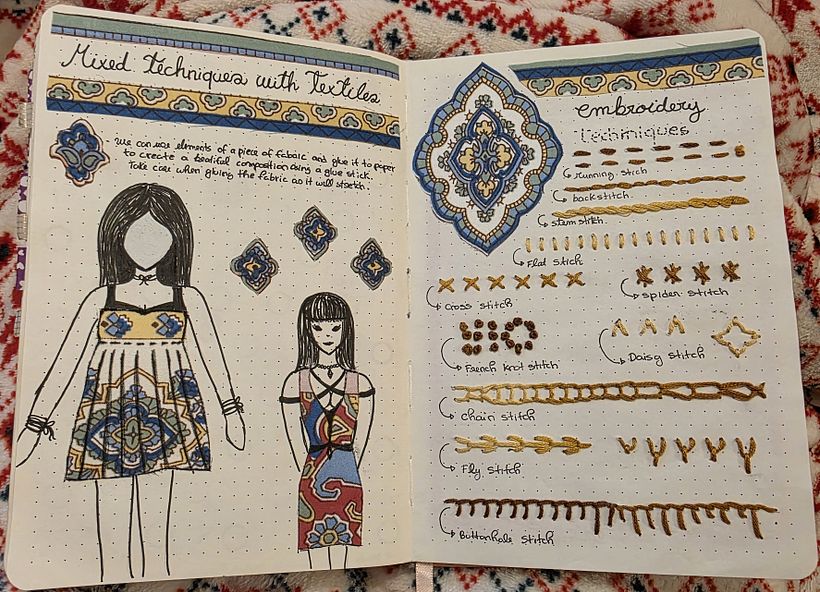 Mixed techniques with Textiles
We can use elements of a piece of fabric and glue it to paper
to create a beatiful composition using a glue stick.
Take care when gluing the fabric as it will stretch.
embroidery
Techniques
running stich
backstitch
stem stitch
Flat stich
Cross stitch
Spider stitch
French knot stitch
Daisy stitch
Chain stitch
Fly stitch
Buttonhole stitch